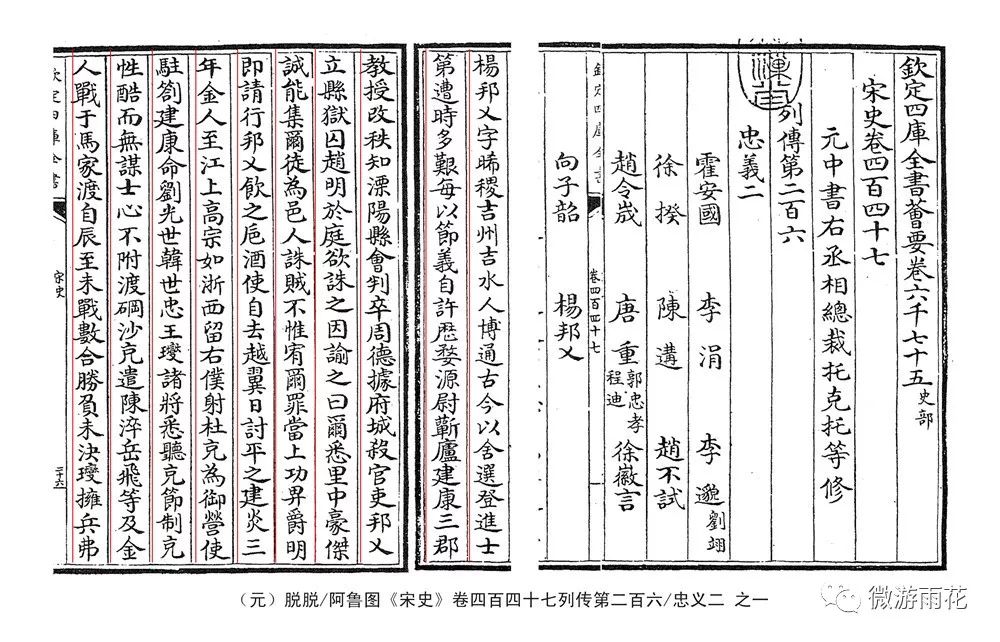 欽定四庫全書薈要卷六千七十五史部
宋史卷四百四十七
元中書右丞相總裁托克托等修
列傳第二百六
忠義二
霍安國 李涓 李邈 劉翊
徐揆 陳遘 趙不試
趙令峸 唐重 郭忠孝 程迪 徐徽言
向子韶 楊邦乂
欽定四庫全書 卷四百四十七 一
楊邦乂字晞稷吉州吉水人博通古今以舍選登進士
第遭時多艱每以節義自許歷婺源尉蘄廬建康三郡
教授改秩知溧陽縣會判卒周德據府城殺官吏邦乂
立縣獄囚趙明於庭欲誅之因諭之曰爾悉里中豪傑
誠能集爾徒為邑人誅賊不惟宥爾罪當上功畀爵明
即請行邦乂飲之巵酒使自去越翼日討平之建炎三
年金人至江上高宗如浙西留右僕射杜克為御營使
駐劄建康命劉光世韓世忠王𤫉諸將悉聽克節制克
性酷而無謀士心不附渡碙沙克遣陳淬岳飛等及金
人戰于馬家渡自辰至未戰數合勝負未決𤫉擁兵弗
欽定四庫全書 宋史 二十六
（元）脱脱/阿鲁图《宋史》卷四百四十七列传第二百六/忠义二 之一
微游雨花